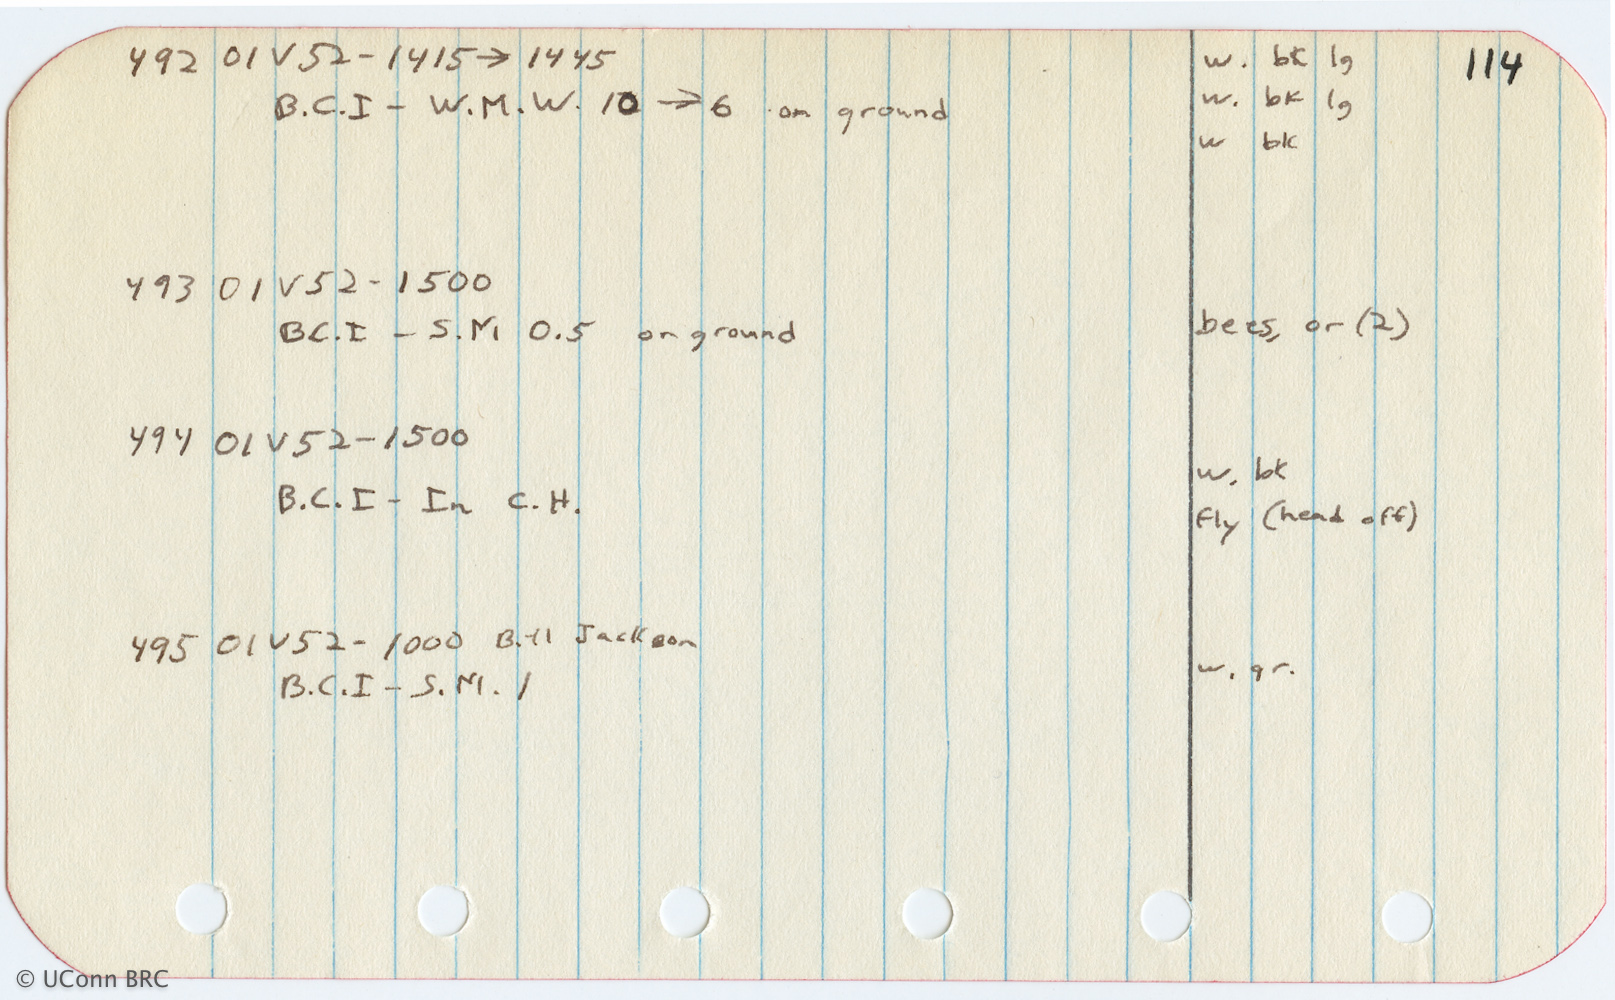 114
492 01 V 52 - 1415 → 1445
B.C.I - W.M.W. 10 → 6 on ground
w. bk lg
w. bk lg
w bk
493 01 V 52 - 1500
B.C.I - S.M 0.5 on ground
bees, or (2)
494 01 V 52 - 1500
B.C.I - In C.H.
w. bk
Fly (head off)
495 01 V 52 - 1000 Bill Jackson
B.C.I - S.M. 1
w. gr.
© UConn BRC